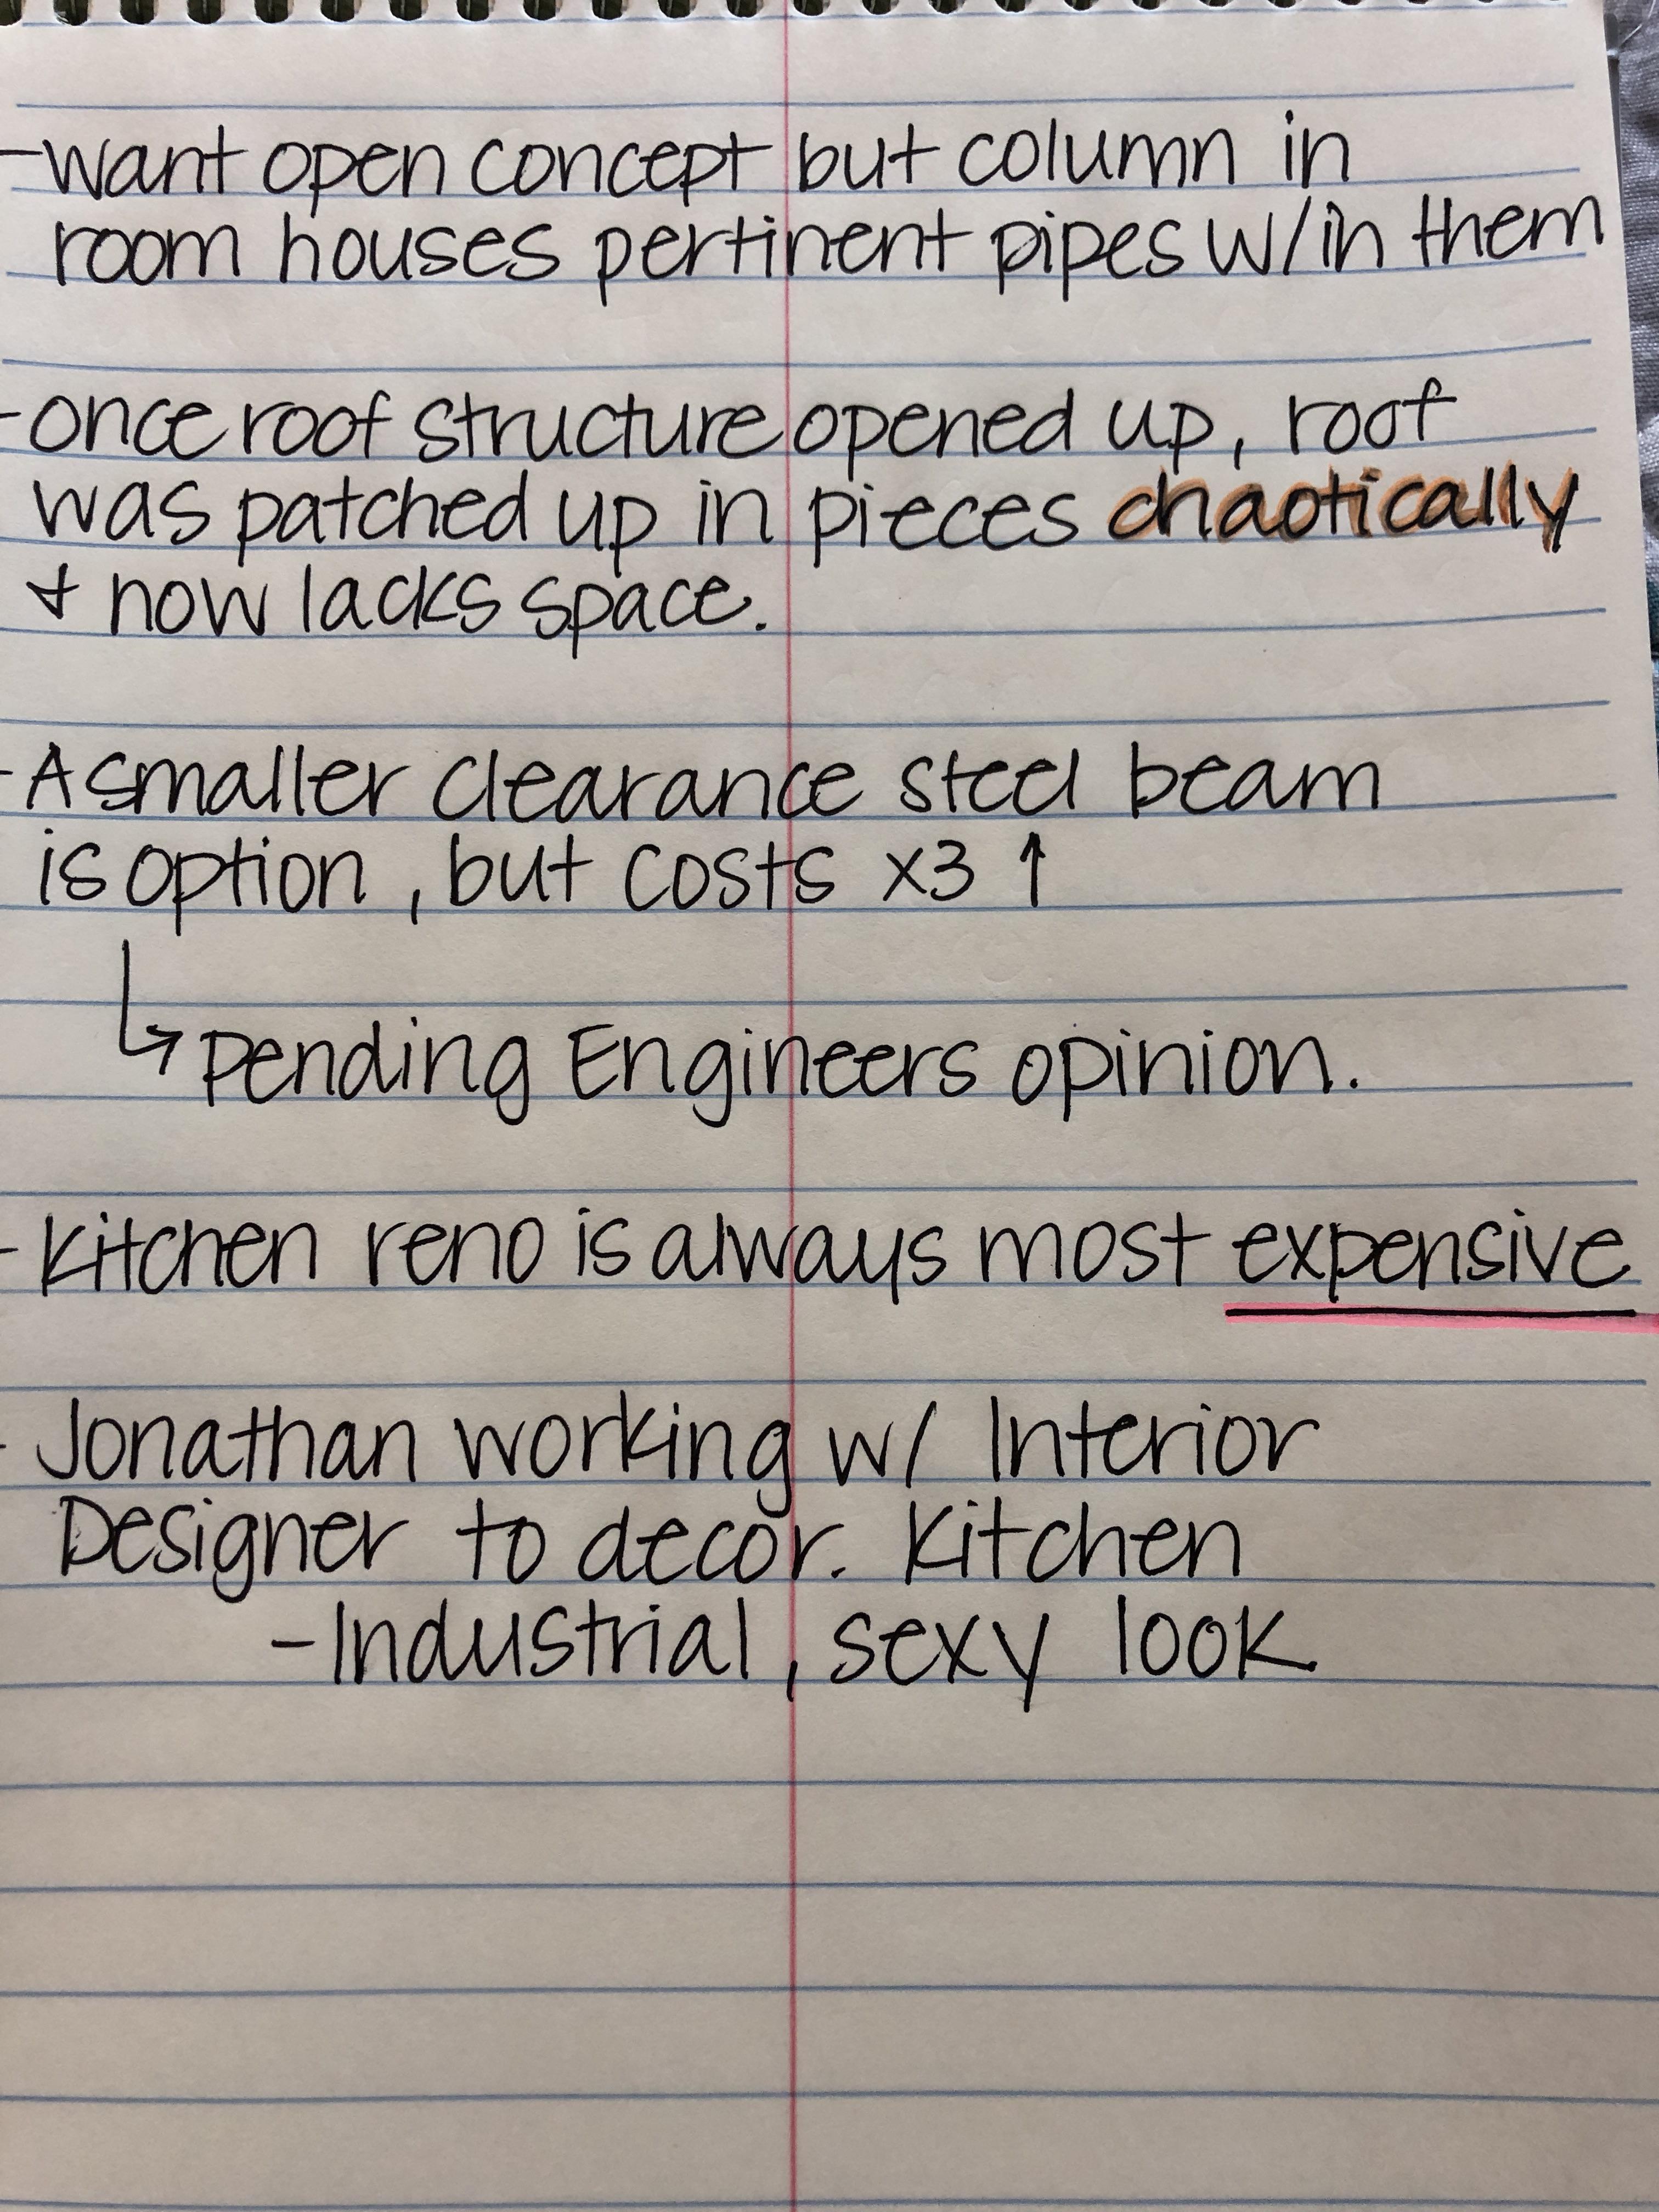 -want open concept but column in
room houses pertinent pipes w/in them
-once roof structure opened up, roof
was patched up in pieces chaotically
+ now lacks space.
-A smaller clearance steel beam
is option, but costs x3 ↑
↳ pending Engineers opinion.
-Kitchen reno is always most expensive
-Jonathan working w/ Interior
Designer to decor. Kitchen
-Industrial, sexy look